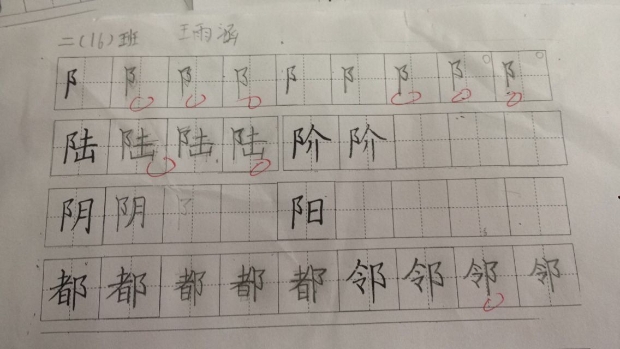 二(16)班 王雨涵
阝 阝 阝 阝 阝 阝 阝 阝 阝
陆 陆 陆 陆 阶 阶
阴 阴 阝 阳
都 都 都 都 都 邻 邻 邻 邻